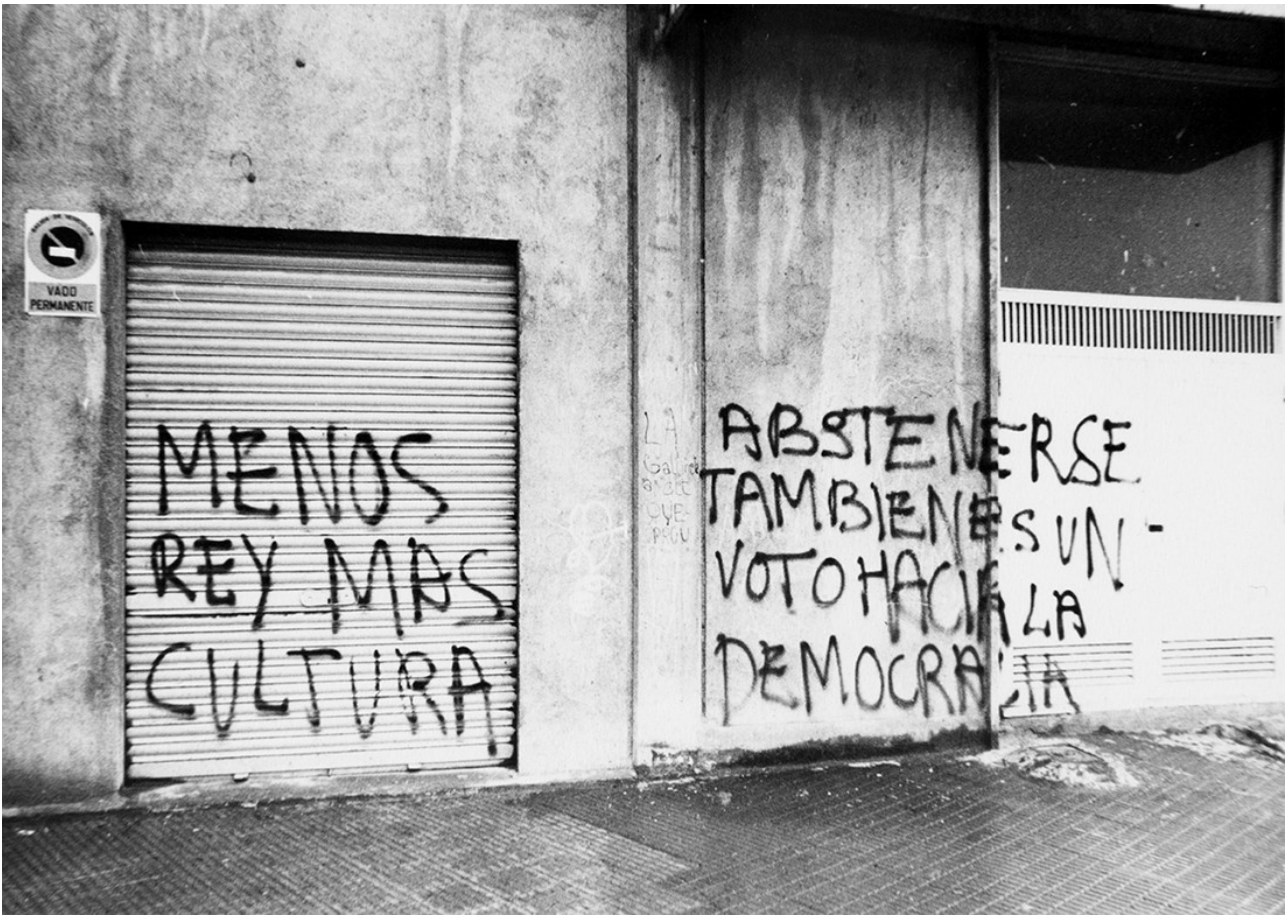 SALIDA DE VEHICULOS
VADO
PERMANENTE
MENOS
REY MAS
CULTURA
LA
ABSTENERSE
TAMBIEN ES UN -
VOTO HACIA LA
DEMOCRACIA